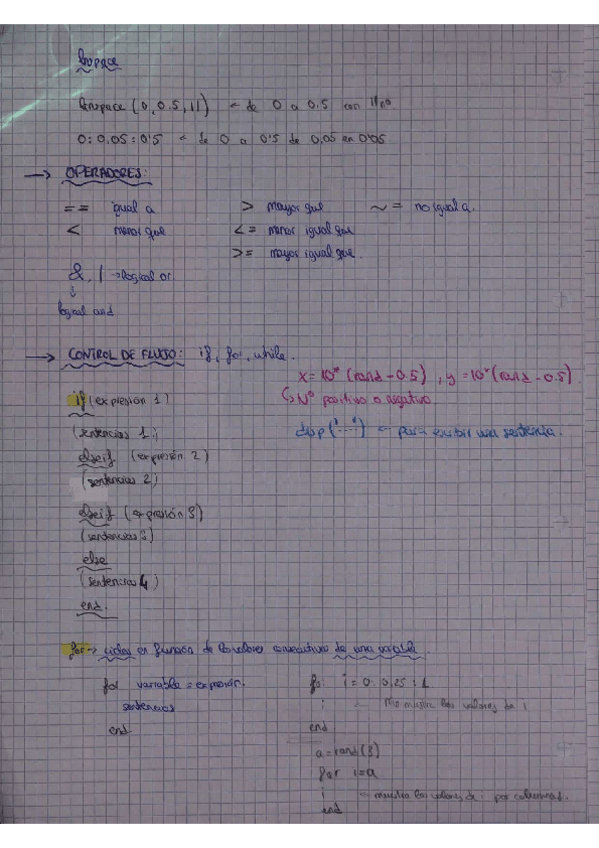 linspace
linspace (0, 0.5, 11) ← de 0 a 0.5 con 11 nº
0: 0,05 : 0'5 ← de 0 a 0'5 de 0,05 en 0'05
→ OPERADORES:
== igual a > mayor que ~= no igual a.
< menor que <= menor igual que
>= mayor igual que.
&, | → logical or
↓
logical and
→ CONTROL DE FLUJO: if, for, while.
x = 10* (rand - 0.5) , y = 10*(rand - 0.5)
if (expresión 1) ↳ Nº positivo o negativo.
(sentencias 1;) disp ('....') ← para escribir una sentencia.
elseif (expresión 2)
(sentencias 2)
elseif (expresión 3)
(sentencias 3)
else
(sentencias 4)
end.
for → ciclos en función de los valores consecutivos de una variable.
for variable = expresión. for i = 0: 0,25 : 1
sentencias i ← Me muestra los valores de i
end end
a = rand(3)
for i=a
i ← muestra los valores de i por columnas.
end